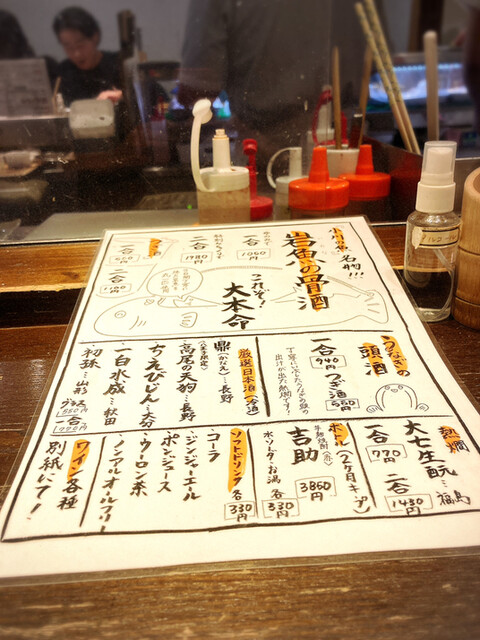 小川の魚 名物!!!
岩魚の骨酒
二合
1050円
二合
1980円
これぞ!
大本命
二合
うなぎの頭酒
一合 940円
つぎ酒 550円
丁寧に炙ったうなぎの頭の
出汁が出た熱燗です!
厳選日本酒(冷酒)
鼎(かなえ)…長野
(八王子限定)
高尾の天狗…長野
ちえびじん…大分
一白水成…秋田
初孫…山形
グラス 550円
一合 990円
熱燗
大七生酛…福島
一合 770円
二合 1430円
ボトル(2ヶ月キープ)
芋焼酎(赤)
吉助 3850円
水・ソーダ・お湯 各330円
ソフトドリンク 各330円
・コーラ
・ジンジャーエール
・ポンジュース
・ウーロン茶
・ノンアルオールフリー
ワイン各種
別紙にて!
アルコール